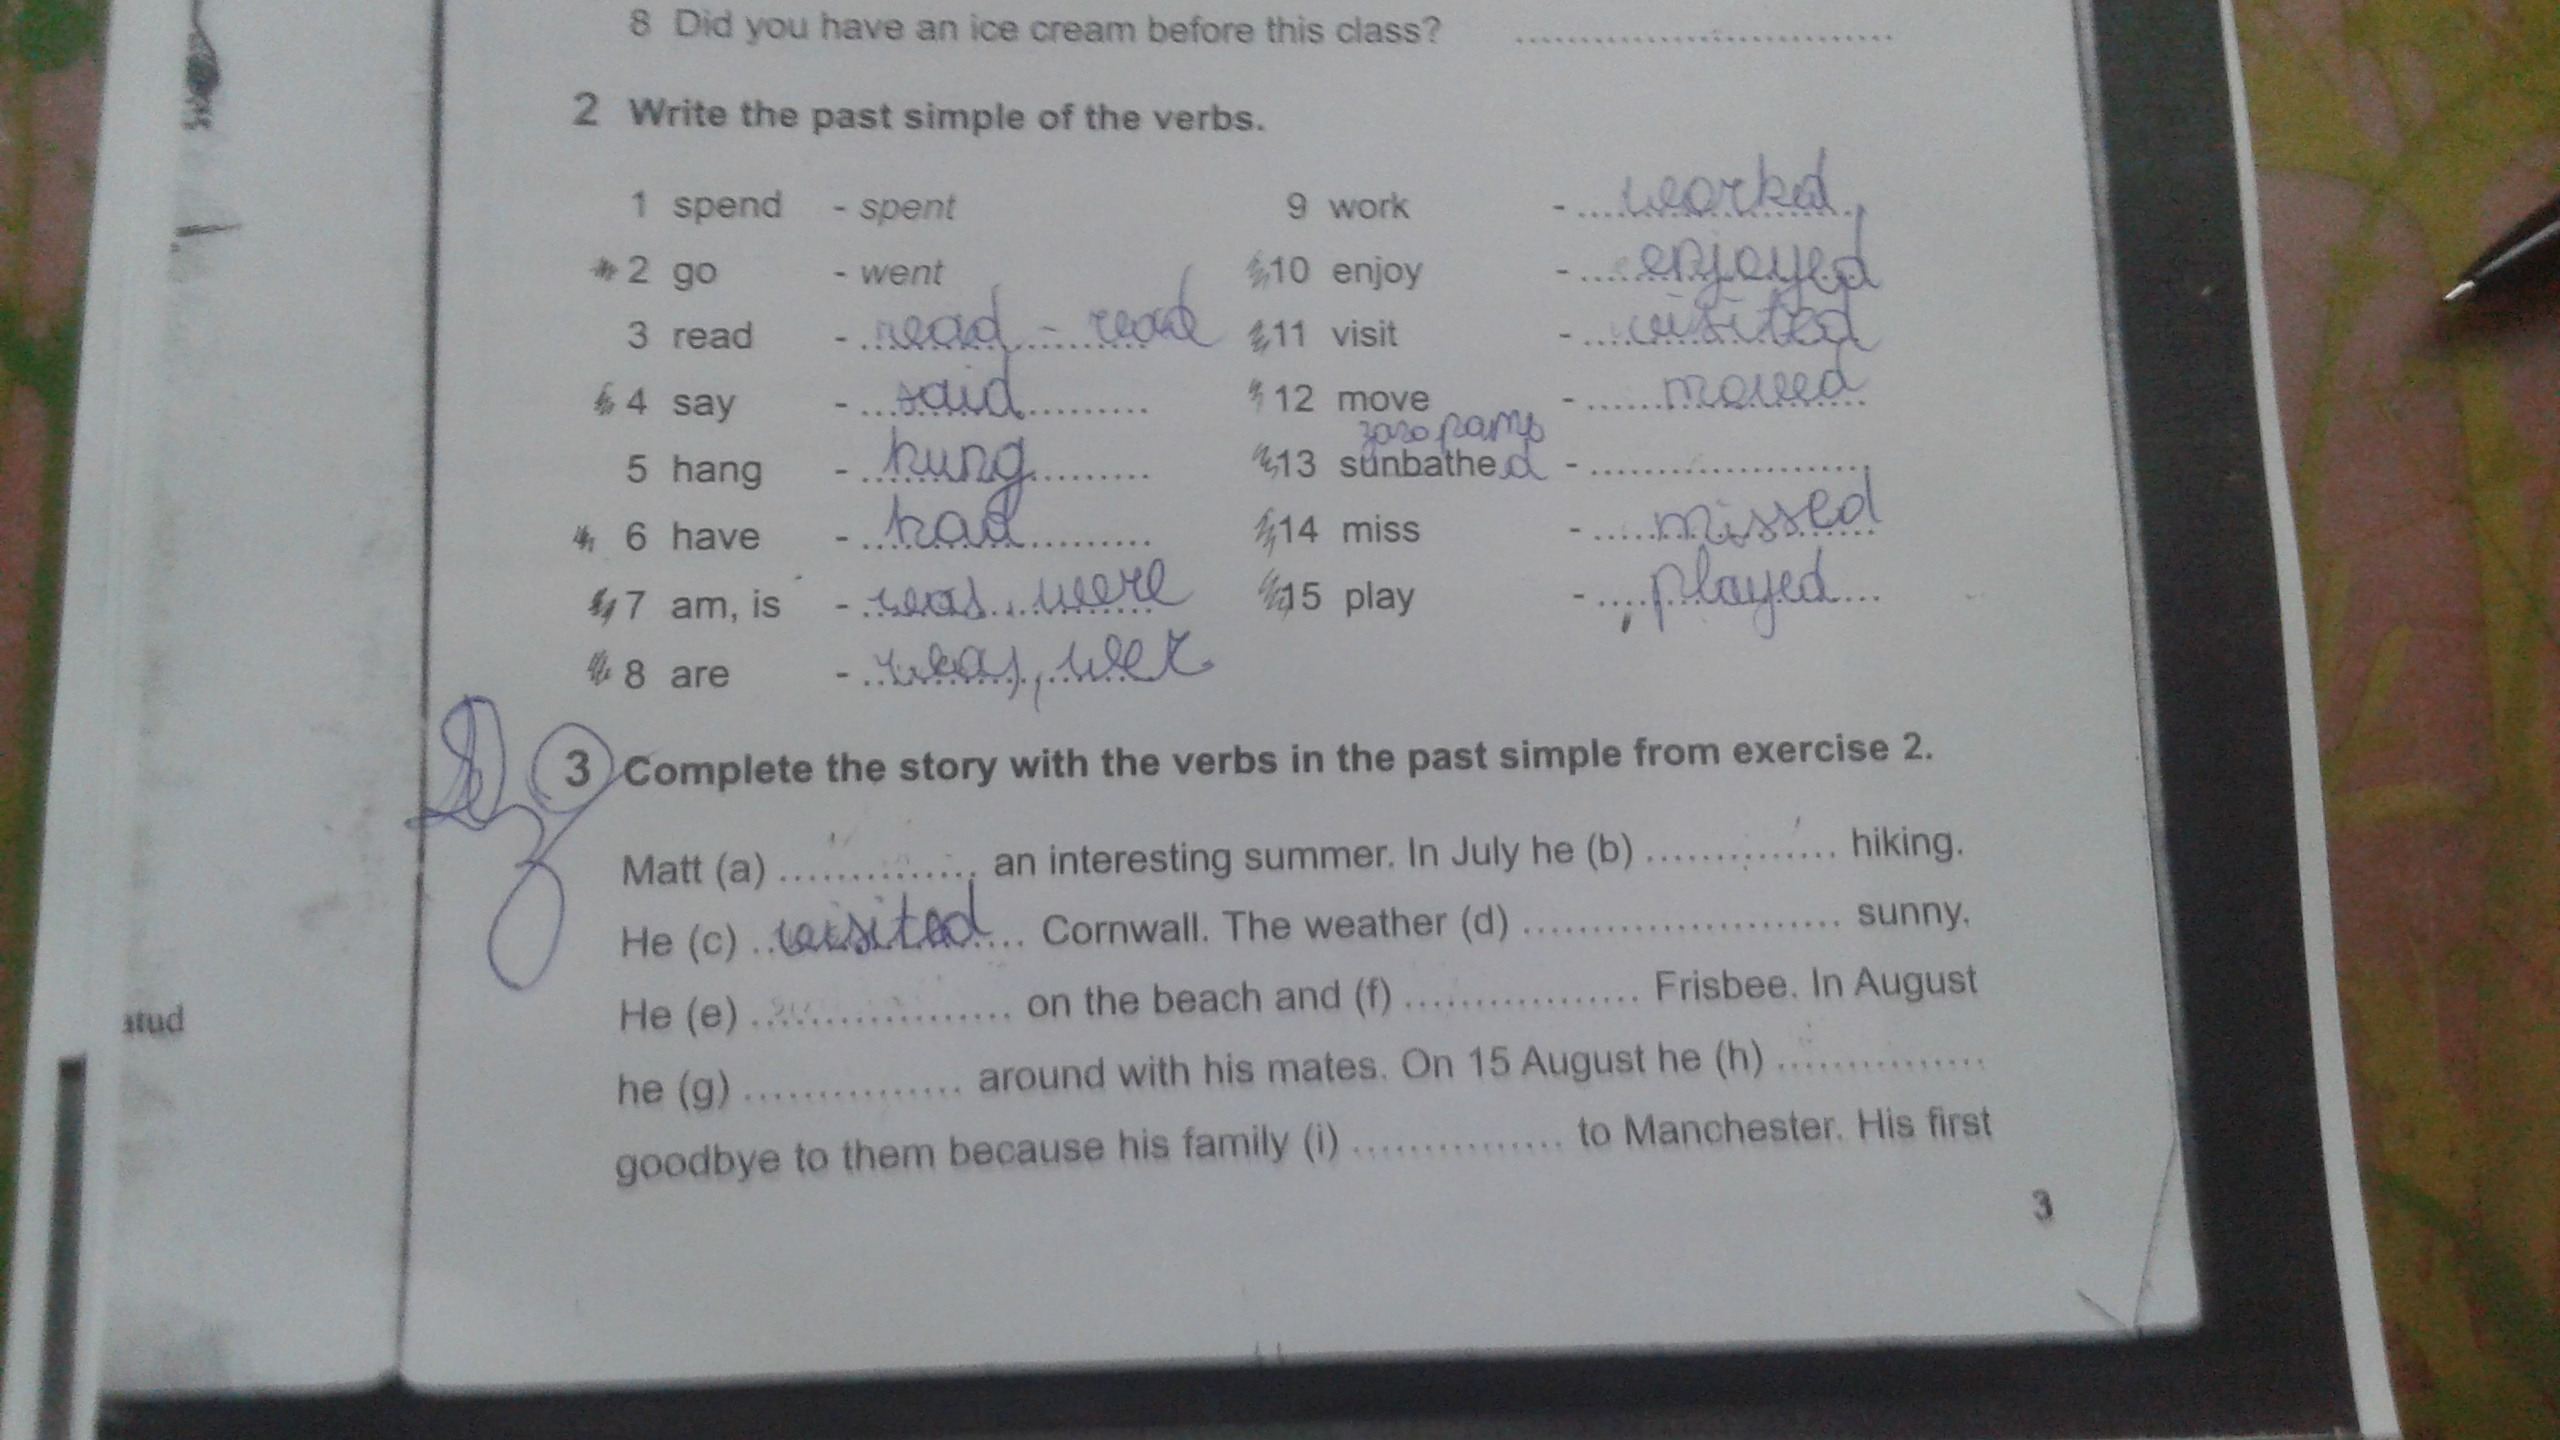 8 Did you have an ice cream before this class? ..............................
2 Write the past simple of the verbs.
1 spend - spent
2 go - went
3 read - read - read
4 say - said
5 hang - hung
6 have - had
7 am, is - was, were
8 are - was, wer
9 work - workd
10 enjoy - enjoyed
11 visit - visited
12 move - moved
13 sunbathed - ......................
14 miss - missed
15 play - played
3 Complete the story with the verbs in the past simple from exercise 2.
Matt (a) .................. an interesting summer. In July he (b) ................. hiking.
He (c) visited Cornwall. The weather (d) ............................ sunny.
He (e) ....................... on the beach and (f) ..................... Frisbee. In August
he (g) ................... around with his mates. On 15 August he (h) ..................
goodbye to them because his family (i) .................. to Manchester. His first
3